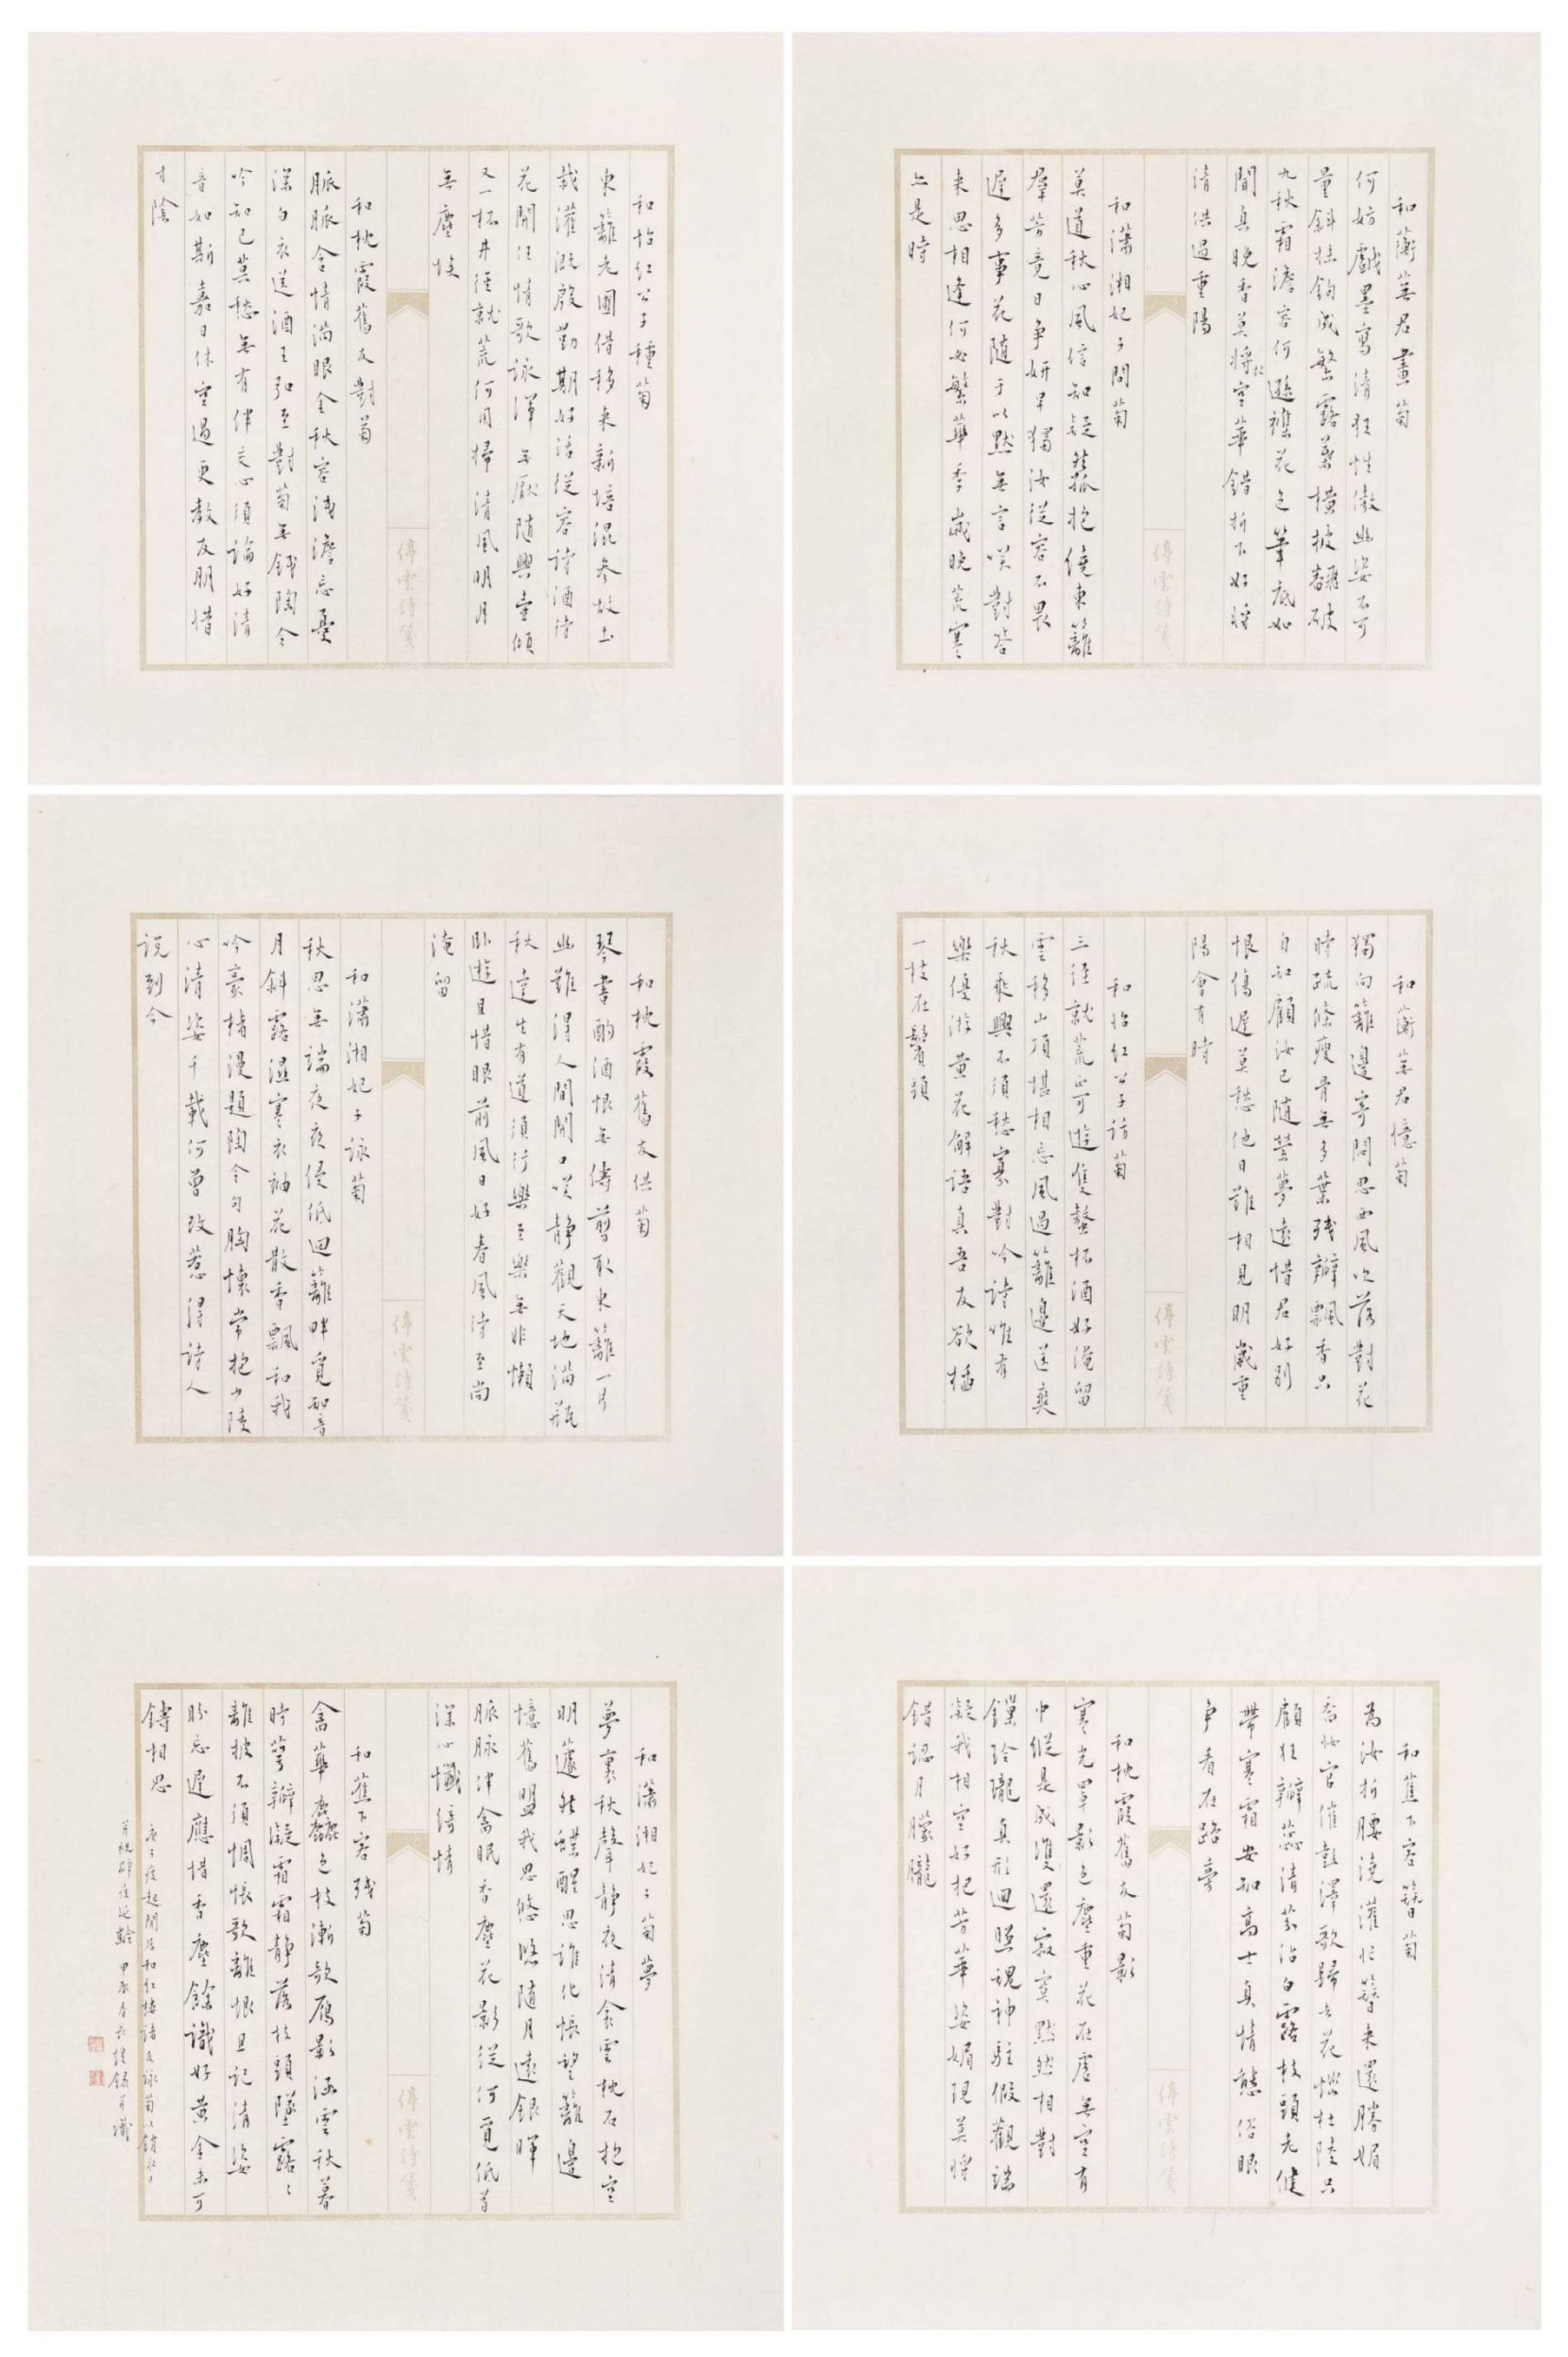 和蘅蕪君畫菊
何妨戲墨寫清狂性傲幽姿不可
量斜抹鉤成繁露蘂橫披翻破
九秋霜澹容何遜襍花色筆底如
聞真晚香莫將空華錯折下好將
清供過重陽
和瀟湘妃子問菊
莫道秋心風信知疑孤抱傍東籬
群芳竟日爭妍早獨汝從容不畏
遲多事花随手以默無言唉對答
來思相逢何必繁華季歲晚荒寒
亦是時
停雲詩箋
和怡紅公子種菊
東籬老圃借移來新培混參故土
栽灌溉殷勤期好活從容詩酒待
花開任情歌詠渾無厭随興壺傾
又一杯井徑就荒何用掃清風明月
無塵埃
和枕霞舊友對菊
脈脈含情滿眼金秋容淺澹忘憂
深白衣送酒王弘至對菊無錢陶令
吟知己莫愁無有伴交心須論好清
音如斯嘉日休空過更教友朋惜
寸陰
停雲詩箋
和蘅蕪君憶菊
獨向籬邊寄問思西風吹落對花
時疏條瘦骨無多葉殘瓣飄香只
自知顧汝已随縈夢遠惜君好別
恨傷遲莫愁他日難相見明歲重
陽會有時
和怡紅公子訪菊
三徑就荒正可遊隻螯杯酒好淹留
雲移山頂堪相忘風過籬邊送爽
秋乘興不須愁寡對吟詩唯有
樂優游黃花解語真吾友欲插
一枝在鬢頭
停雲詩箋
和枕霞舊友供菊
琴書酌酒恨無儔剪取東籬一片
幽難得人間開口唉靜觀天地滿瓶
秋達生有道須行樂至樂無非懶
卧遊且惜眼前風日好春風待至尚
淹留
和瀟湘妃子詠菊
秋思無端夜夜侵低迴籬畔覓知音
月斜露濕寒衣袖花散香飄和我
吟豪楮漫題陶令句胸懷常抱山陸
心清姿千載何曾改惹得詩人
說到今
停雲詩箋
和蕉下客簪菊
為汝折腰澆灌忙簪來還勝媚
喬妝官催彭澤歌歸去花惱杜陵只
顧狂瓣蕊清芬沾白露枝頭老健
帶寒霜安知高士真情態俗眼
爭看在路旁
和枕霞舊友菊影
寒光罩影色塵重花在虛無空有
中縱是成雙還寂寞黙然相對
鏁玲瓏真形迴照魂神駐假觀端
凝我相空好把芳華姿媚現莫將
錯認月朦朧
停雲詩箋
和瀟湘妃子菊夢
夢裏秋聲靜夜清禽雲枕石抱空
明蘧然蝶醒思誰化悵望籬邊
憶舊盟我思悠悠随月遠銀暉
脈脈伴禽眠香塵花影從何覓低首
深心懺綺情
和蕉下客殘菊
含華麤色枝漸欹雁影涵雲秋暮
時萼瓣凝霜霜靜落枝頭墜露露
離披不須惆悵歌離恨且記清姿
盼忘遲應惜香塵餘識好黃金未可
鑄相思
停雲詩箋